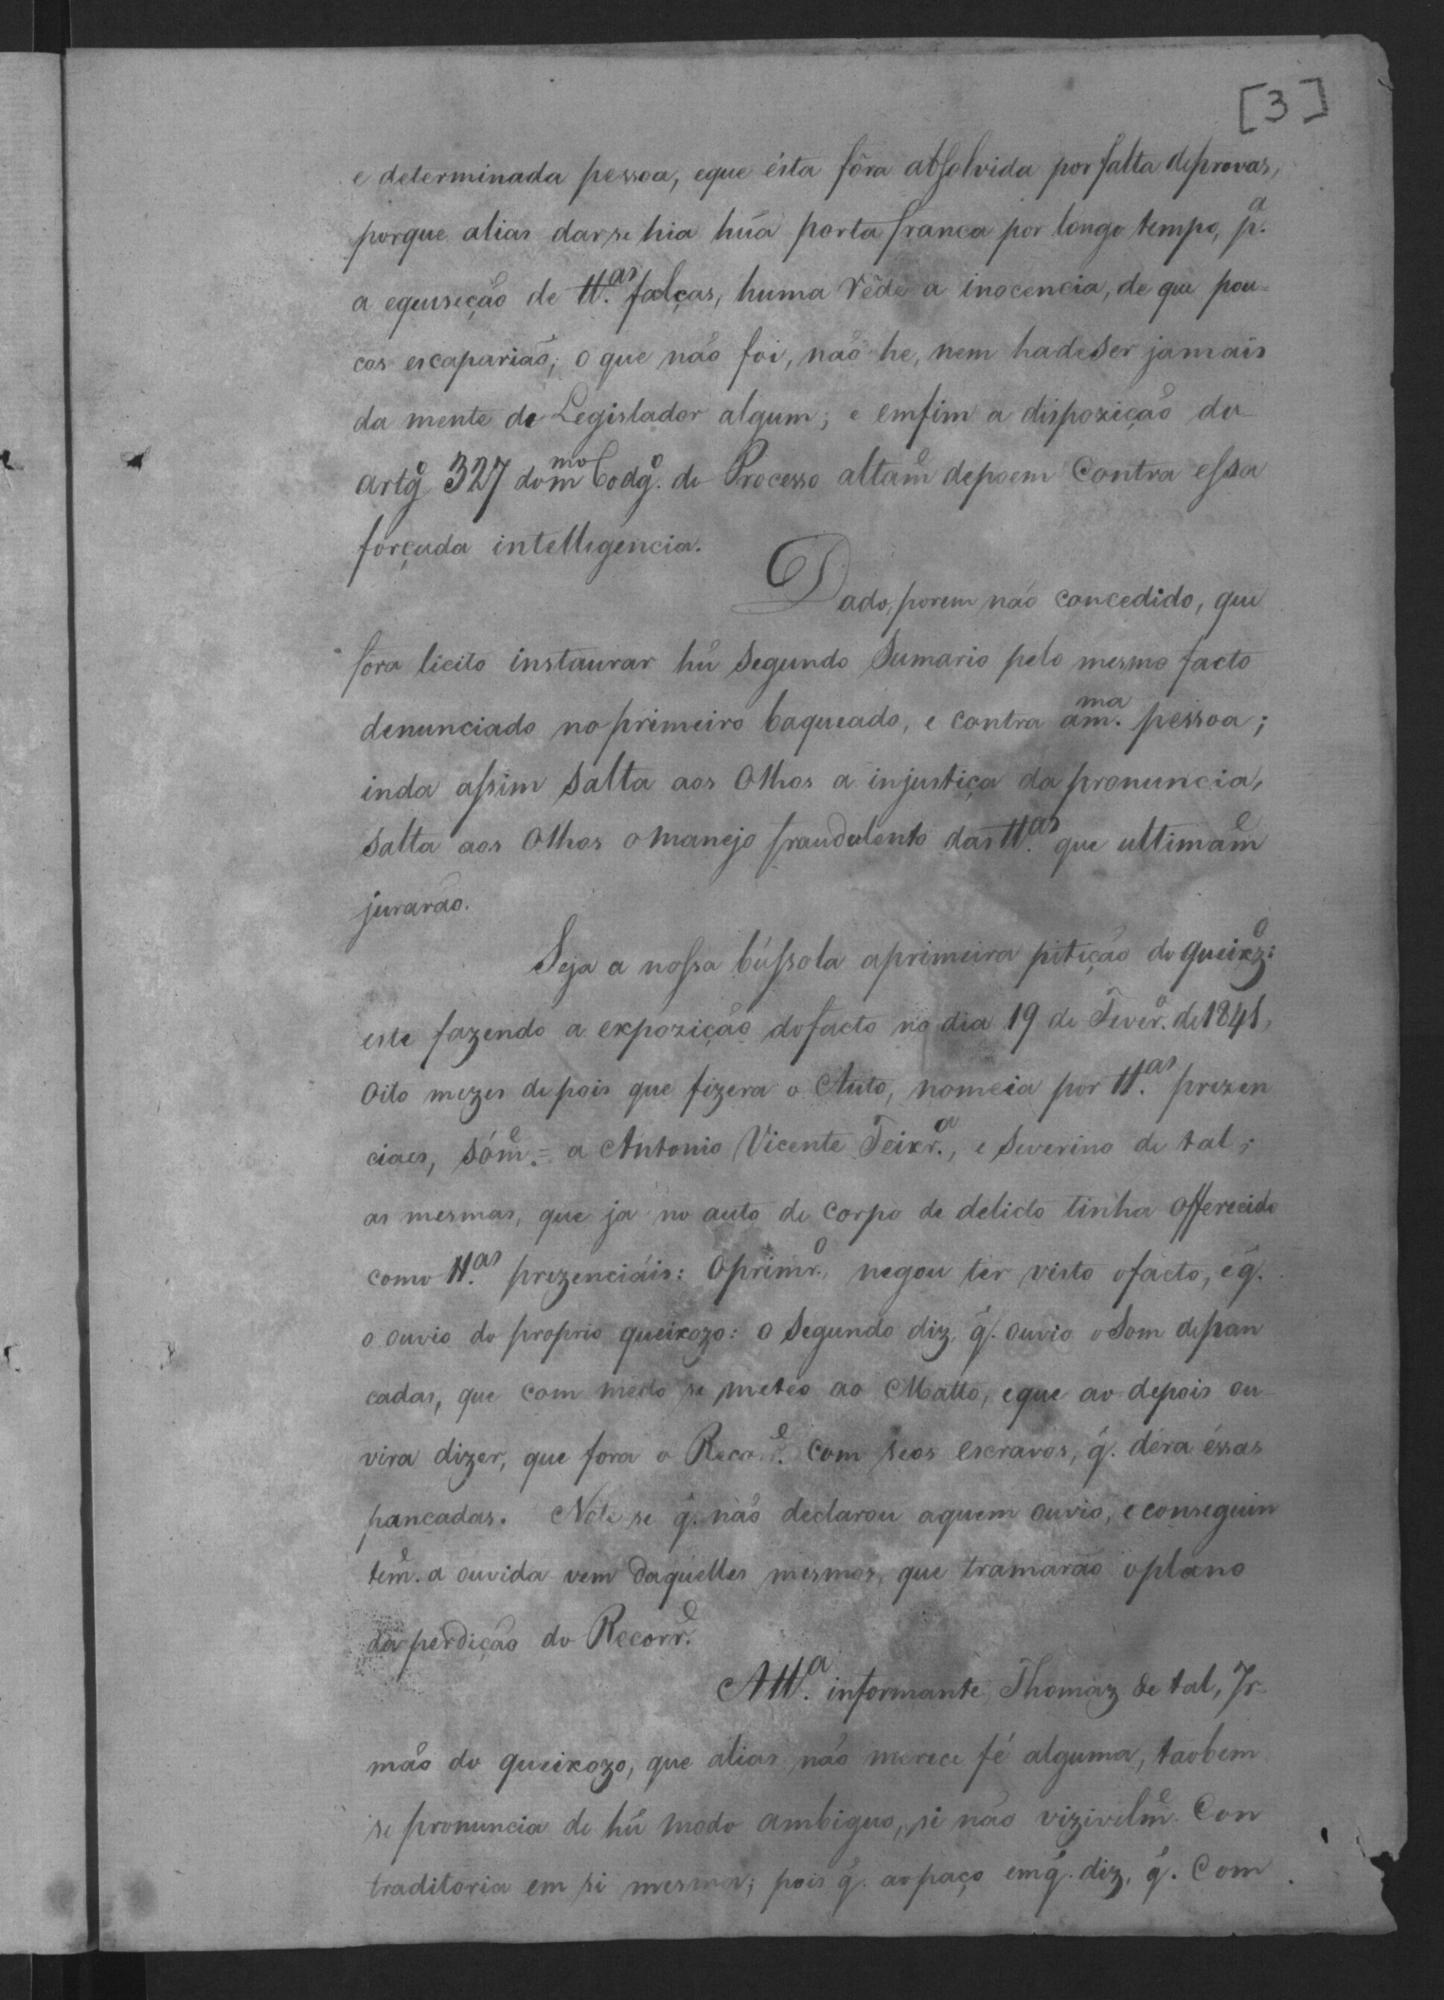 [3]
e determinada pessoa, eque ésta fôra absolvida por falta deprovas,
porque alias darse hia hũa porta franca por longo tempo, p.ª
a equeseção de tt.as falças, huma rêde a inocencia, de que pou-
cos escapariaõ; o que naõ foi, naõ he, nem hadeser jamais
da mente de Legislador algum; e emfim a dispozição do
artgº 327 dom.mo Codgº. do Processo altam.e depoem Contra essa
forçada intelligencia.
Dado, porem não concedido, que
fôra licito instaurar hũ segundo Sumario pelo mesmo facto
denunciado no primeiro baqueado, e contra am.ma pessoa;
inda assim salta aos olhos a injustiça da pronuncia,
salta aos olhos omanejo fraudulento das tt.as que ultimam.e
juraraõ.
Seja a nossa bússola aprimeira pitição do queixzº:
este fazendo a expozição dofacto no dia 19 de Fever.º de 1841,
oito mezes depois que fizera o Auto, nomeia por tt.as prezen
ciaes, sóm.e = a Antonio Vicente Teixr.ª, e Severino de tal;
as mesmas, que ja no auto de corpo de delicto tinha offerecido
como tt.as prezenciáis: Oprimr.º negou ter visto ofacto, e q̃.
o ouvio do proprio queixozo: o segundo diz, q̃. ouvio o som depan
cadas, que com medo se meteo ao Matto, eque ao depois ou-
vira dizer, que fora o Recor.e com seos escravos, q̃. déra éssas
pancadas. Note se q̃. não declarou aquem ouvio, e conseguin
tem.e a ouvida vem daquelles mesmos, que tramaraõ oplano
da perdição do Recorr.e
A tt.a informante, Thomaz de tal, Ir-
mão do queixozo, que alias não merece fé alguma, taobem
se pronuncia de hũ modo ambiguo, si não vizivelm.e Con
traditoria em si mesma; pois q̃. ao paço emq̃. diz, q̃. Com